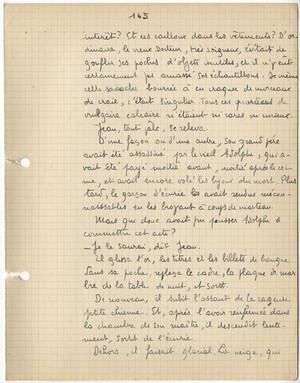 165
intérêt? Et ces cailloux dans les vêtements? D'or-
dinaire, le vieux Docteur, très soigneux, évitait de
gonfler ses poches d'objets inutiles, et il n'y eût
certainement pas amassé ses échantillons. De même
cette sacoche bourrée à en craquer de morceaux
de craie, c'était singulier. Tous ces morceaux de
vulgaire calcaire n'étaient ni rares ni curieux.
Jean, tout pâle, se releva.
D'une façon ou d'une autre, son grand-père
avait été assassiné par le vieil Adolphe, qui a-
vait été payé moitié avant, moitié après le cri-
me, et avait encore volé les bijoux du mort. Plus
tard, le garçon d'écurie les avait rendus mécon-
naissables en les broyant à coups de marteau.
Mais qui donc avait pu pousser Adolphe à
commettre cet acte?
– Je le saurai, dit Jean.
Il glissa l'or, les titres et les billets de banque
dans sa poche, replaça le cadre, la plaque de mar-
bre de la table de nuit, et sortit.
De nouveau, il subit l'assaut de la rageuse
petite chienne. Et, après l'avoir renfermée dans
la chambre de son maître, il descendit lente-
ment, sortit de l'écurie.
Dehors, il faisait glacial. La neige, qui